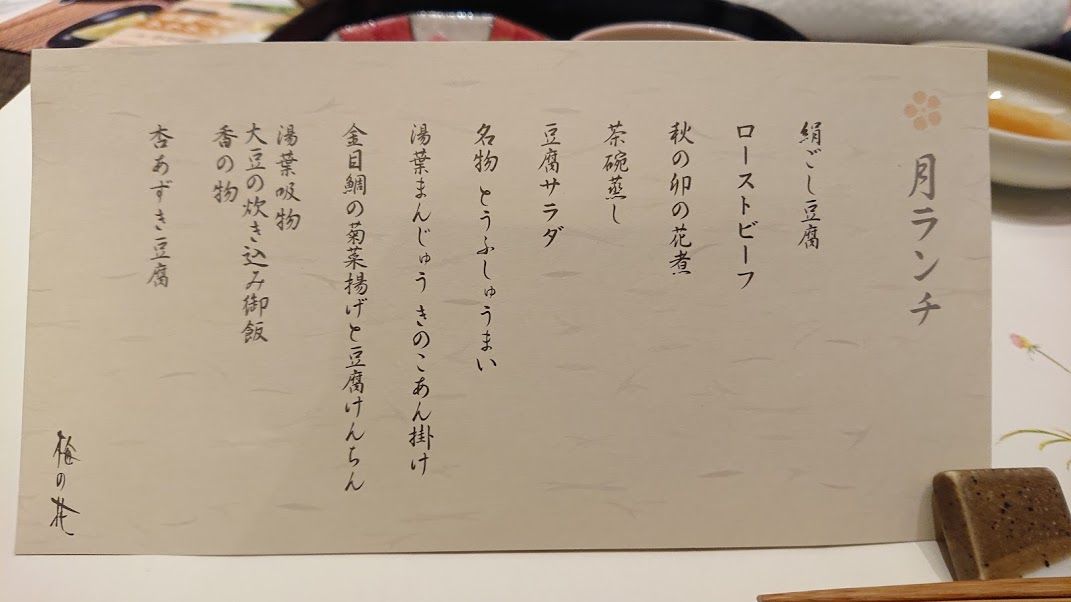 月ランチ
絹ごし豆腐
ローストビーフ
秋の卯の花煮
茶碗蒸し
豆腐サラダ
名物 とうふしゅうまい
湯葉まんじゅう きのこあん掛け
金目鯛の菊菜揚げと豆腐けんちん
湯葉吸物
大豆の炊き込み御飯
香の物
杏あずき豆腐
梅の花